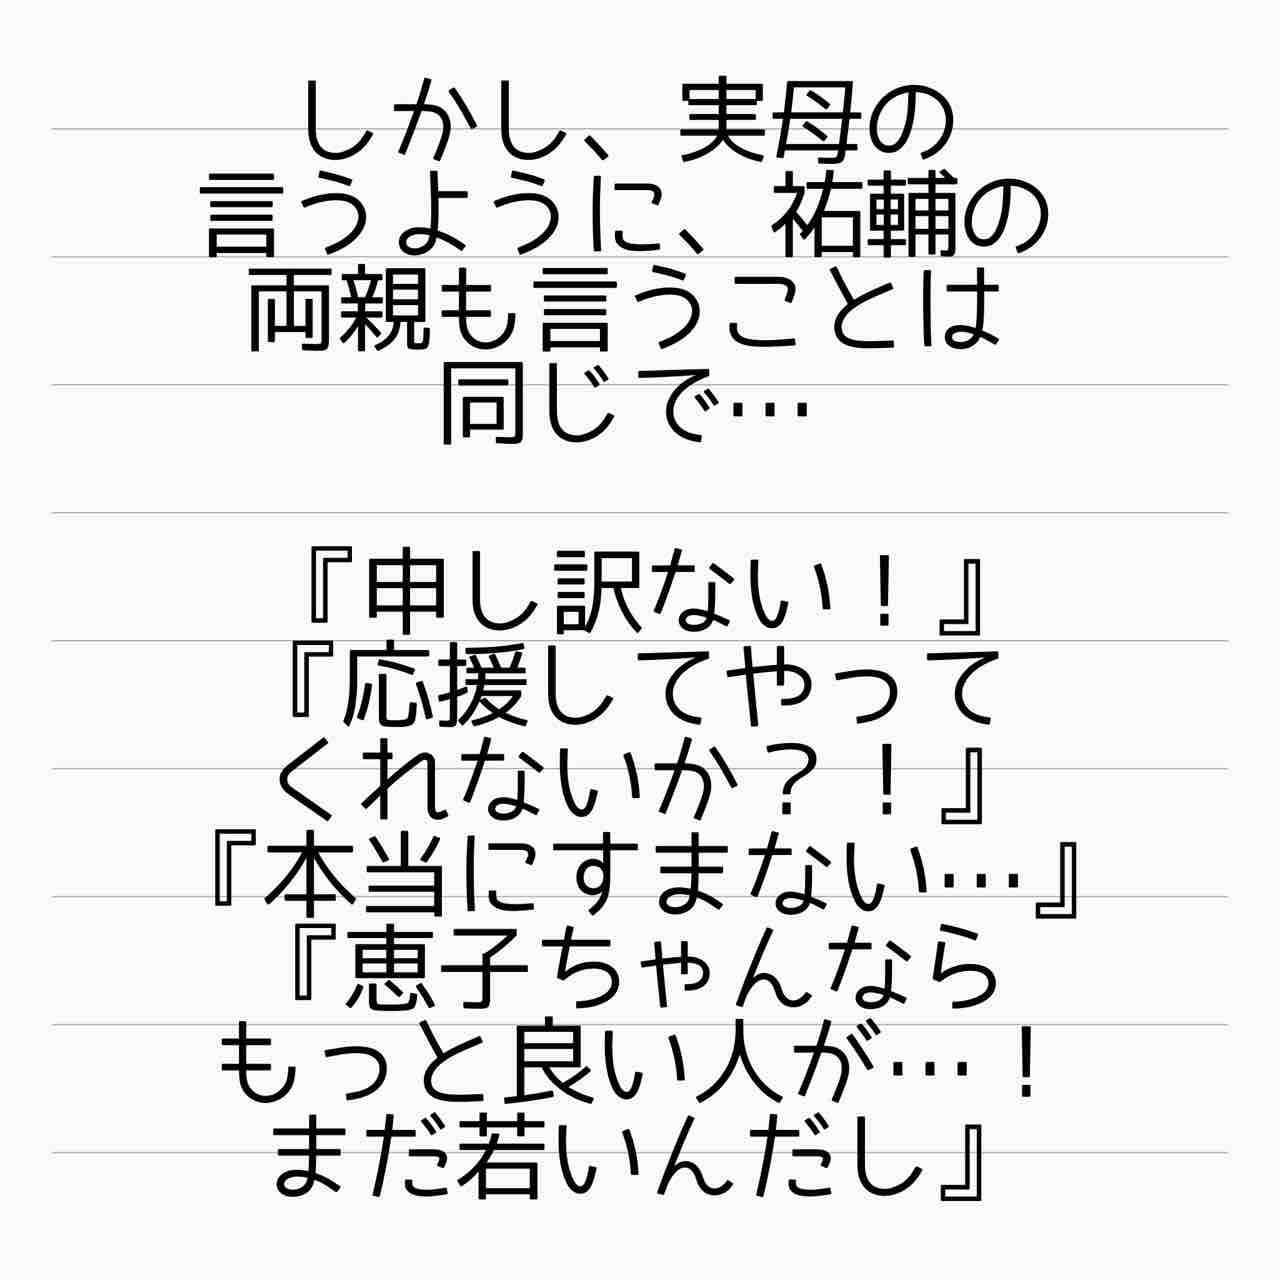 しかし、実母の
言うように、祐輔の
両親も言うことは
同じで…
『申し訳ない！』
『応援してやって
くれないか？！』
『本当にすまない…』
『恵子ちゃんなら
もっと良い人が…！
まだ若いんだし』